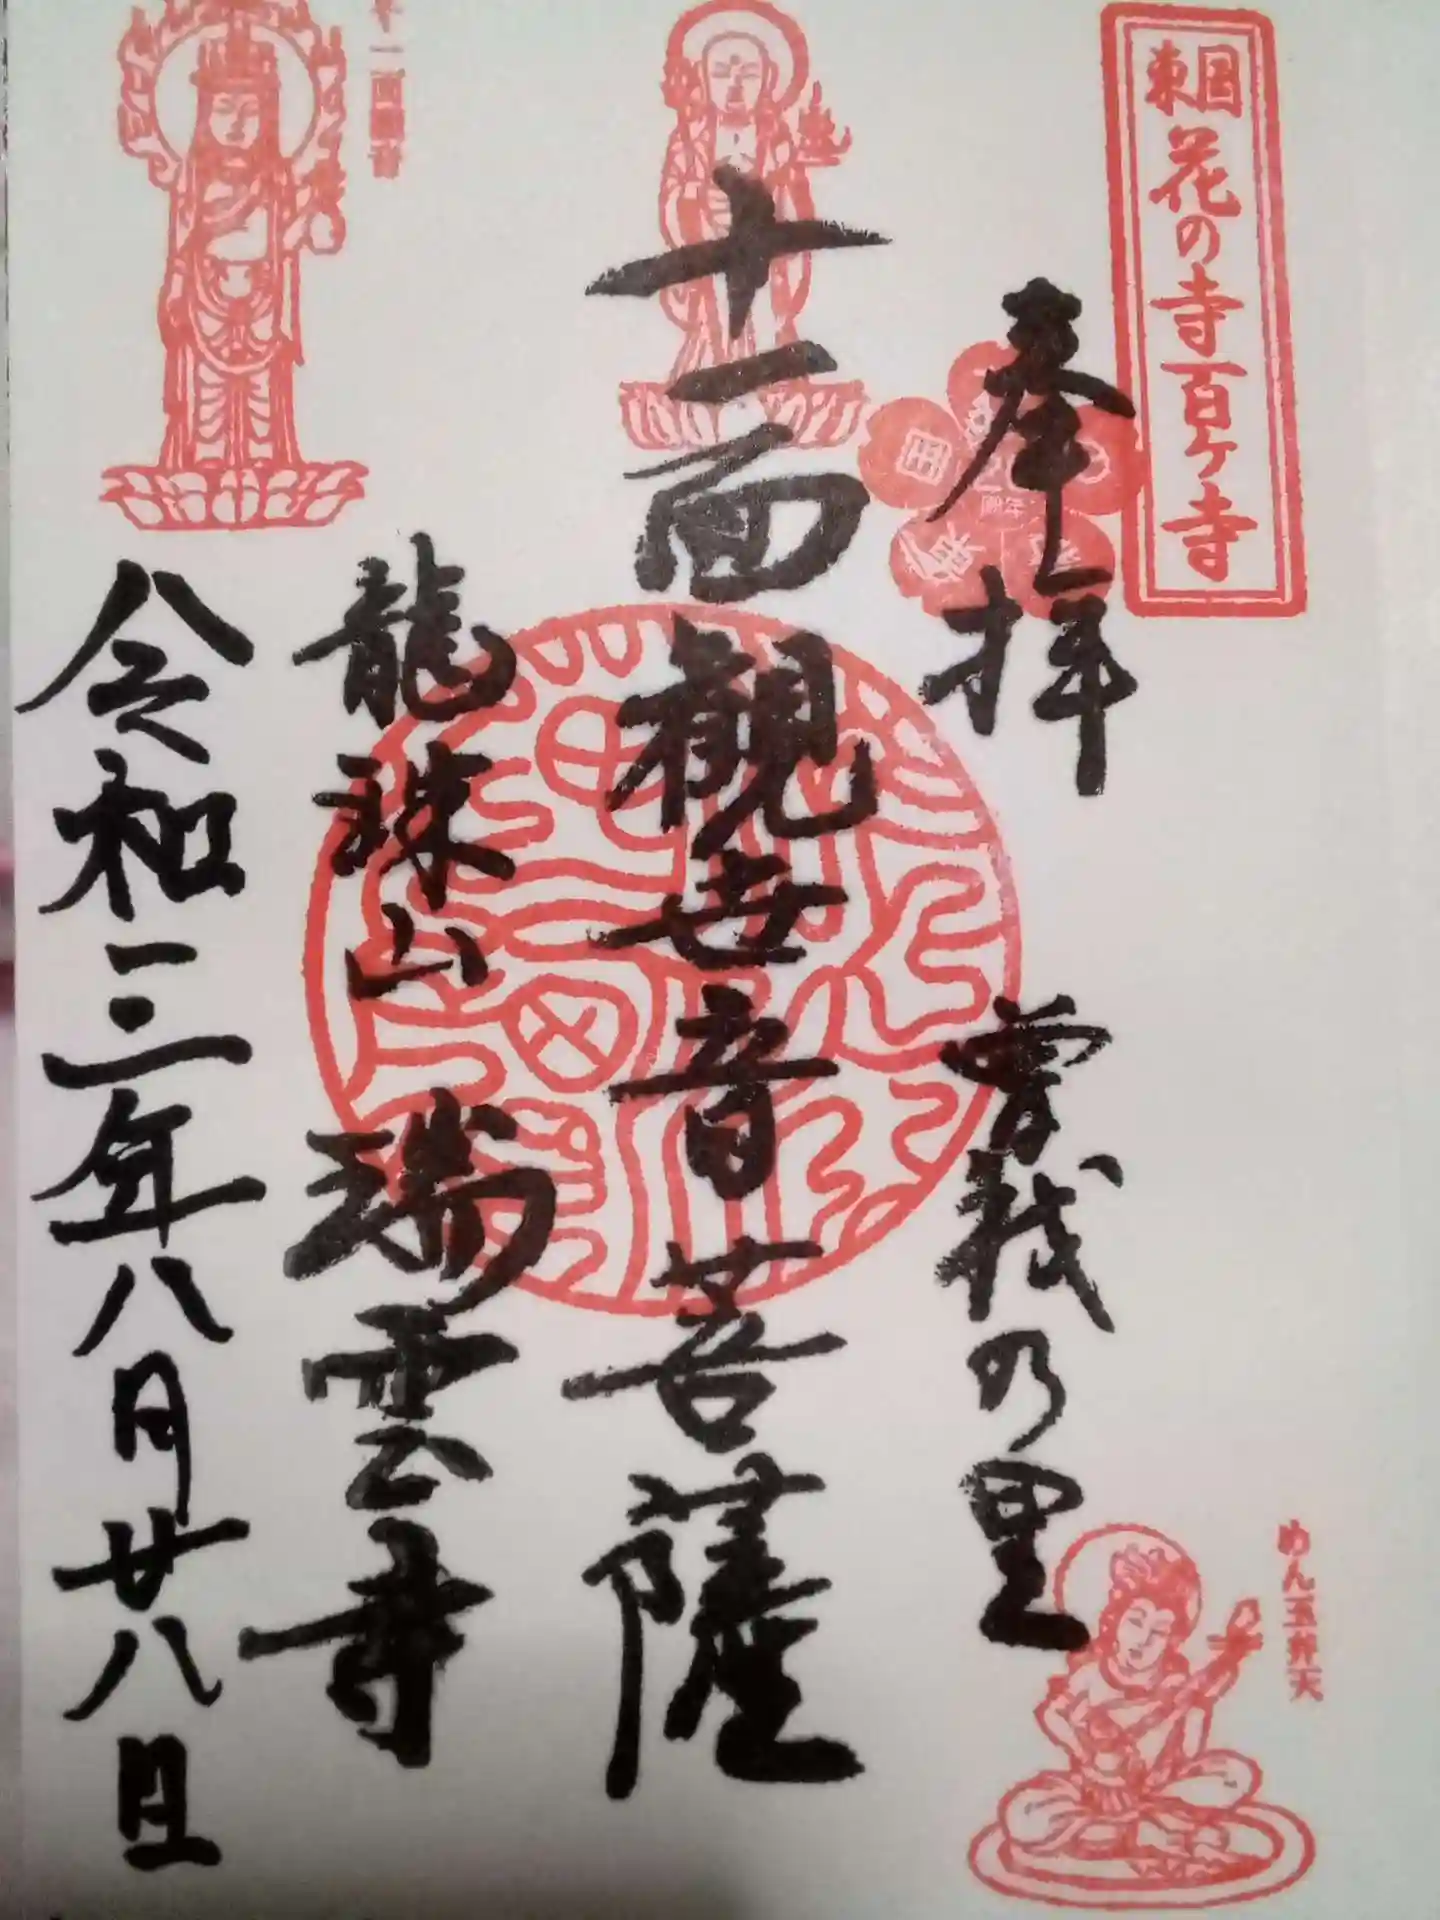 東国花の寺百ヶ寺
奉拝
曽我の里
めん玉弁天
十一面観世音菩薩
十一面観音
龍珠山 瑞雲寺
令和三年八月廿八日